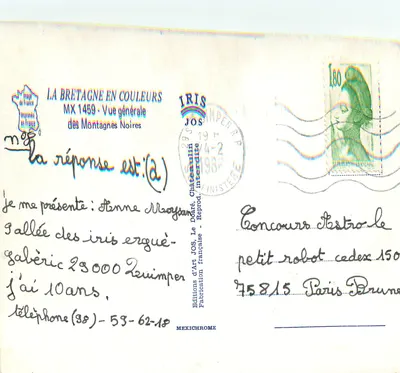 LA BRETAGNE EN COULEURS
MX 1459 - Vue générale
des Montagnes Noires
IRIS
JOS
1,80
nº
la réponse est: (a)
je me présente: Anne
9 allée des iris ergué-
gabéric 29000 Quimper
j'ai 10 ans.
téléphone (98) - 59-62-18
Editions d'Art JOS, Le Doaré, Châteaulin
Fabrication française - Reprod. interdite
MEXICHROME
Concours Astro-le
petit robot cedex 150
75815 Paris Brune